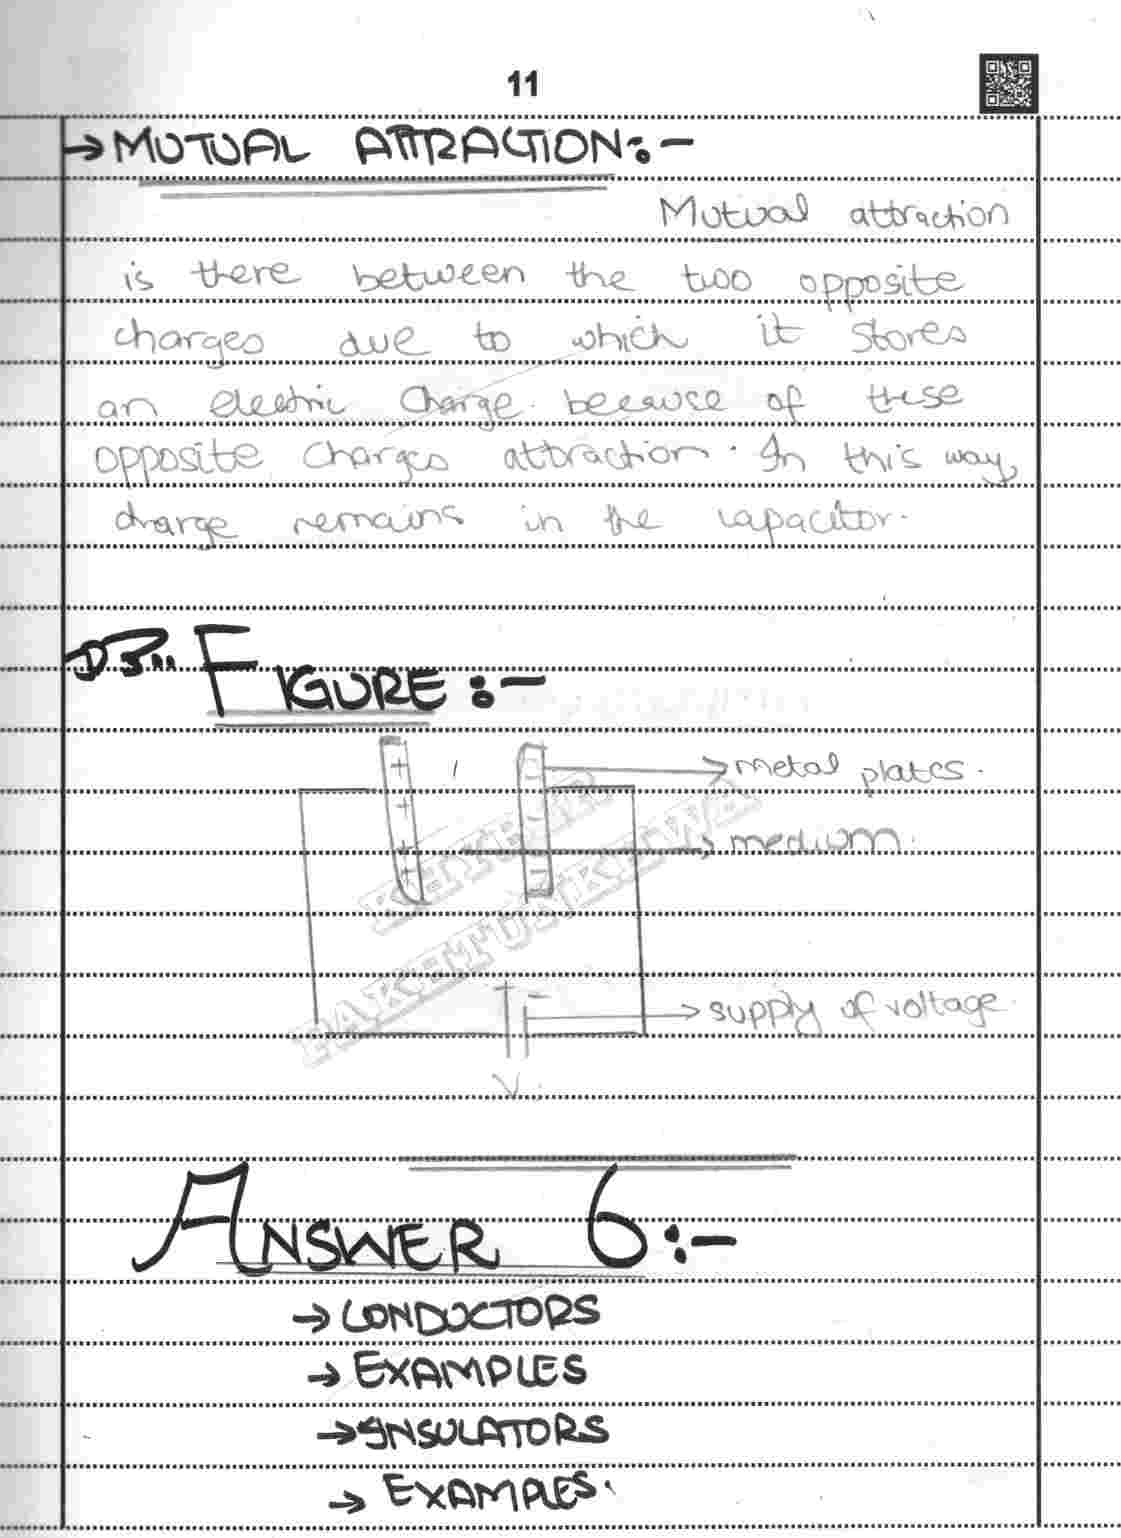 11
→ MUTUAL ATTRACTION:-
Mutual attraction
is there between the two opposite
charges due to which it stores
an electric charge. because of these
opposite charges attraction. In this way,
charge remains in the capacitor.
FIGURE:-
+ -
+ -
+
+ -
→ metal plates.
→ medium.
KHYBER
PAKHTUNKHWA
+ -
→ supply of voltage.
V.
ANSWER 6:-
→ CONDUCTORS
→ EXAMPLES
→ INSULATORS
→ EXAMPLES.